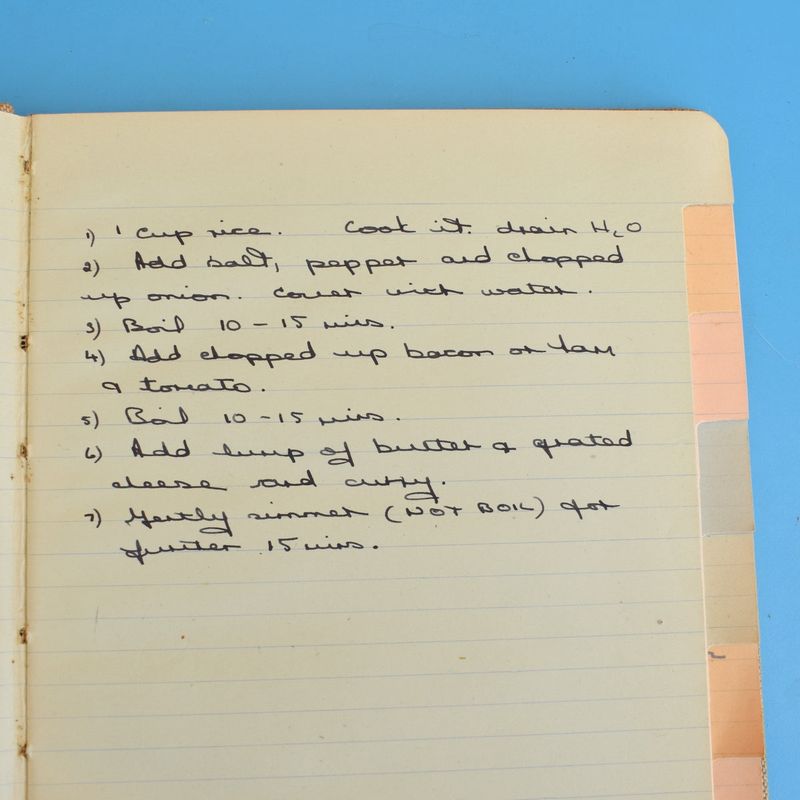 1) 1 cup rice. Cook it. drain H2O
2) Add salt, pepper and chopped
up onion. Cover with water.
3) Boil 10 - 15 mins.
4) Add chopped up bacon or ham
& tomato.
5) Boil 10 - 15 mins.
6) Add lump of butter & grated
cheese and curry.
7) Gently simmer (NOT BOIL) for
further 15 mins.